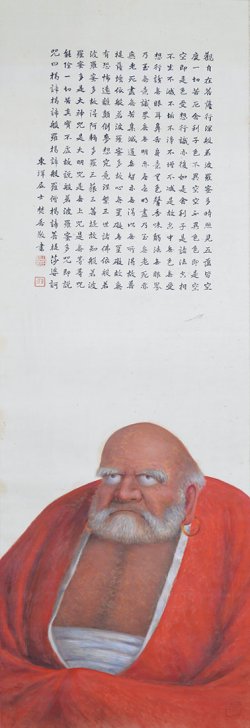 觀自在菩薩行深般若波羅蜜多時照見五蘊皆空
度一切苦厄舍利子色不異空空不異色色即是空
空即是色受想行識亦復如是舍利子是諸法空相
不生不滅不垢不淨不增不減是故空中無色無受
想行識無眼耳鼻舌身意無色聲香味觸法無眼界
乃至無意識界無無明亦無無明盡乃至無老死亦
無老死盡無苦集滅道無智亦無得以無所得故菩
提薩埵依般若波羅蜜多故心無罣礙無罣礙故無
有恐怖遠離顛倒夢想究竟涅槃三世諸佛依般若
波羅蜜多故得阿耨多羅三藐三菩提故知般若波
羅蜜多是大神咒是大明咒是無上咒是無等等咒
能除一切苦真實不虛故說般若波羅蜜多咒即說
咒曰揭諦揭諦般羅揭諦般羅僧揭諦菩提莎婆訶
東洋居士敬書